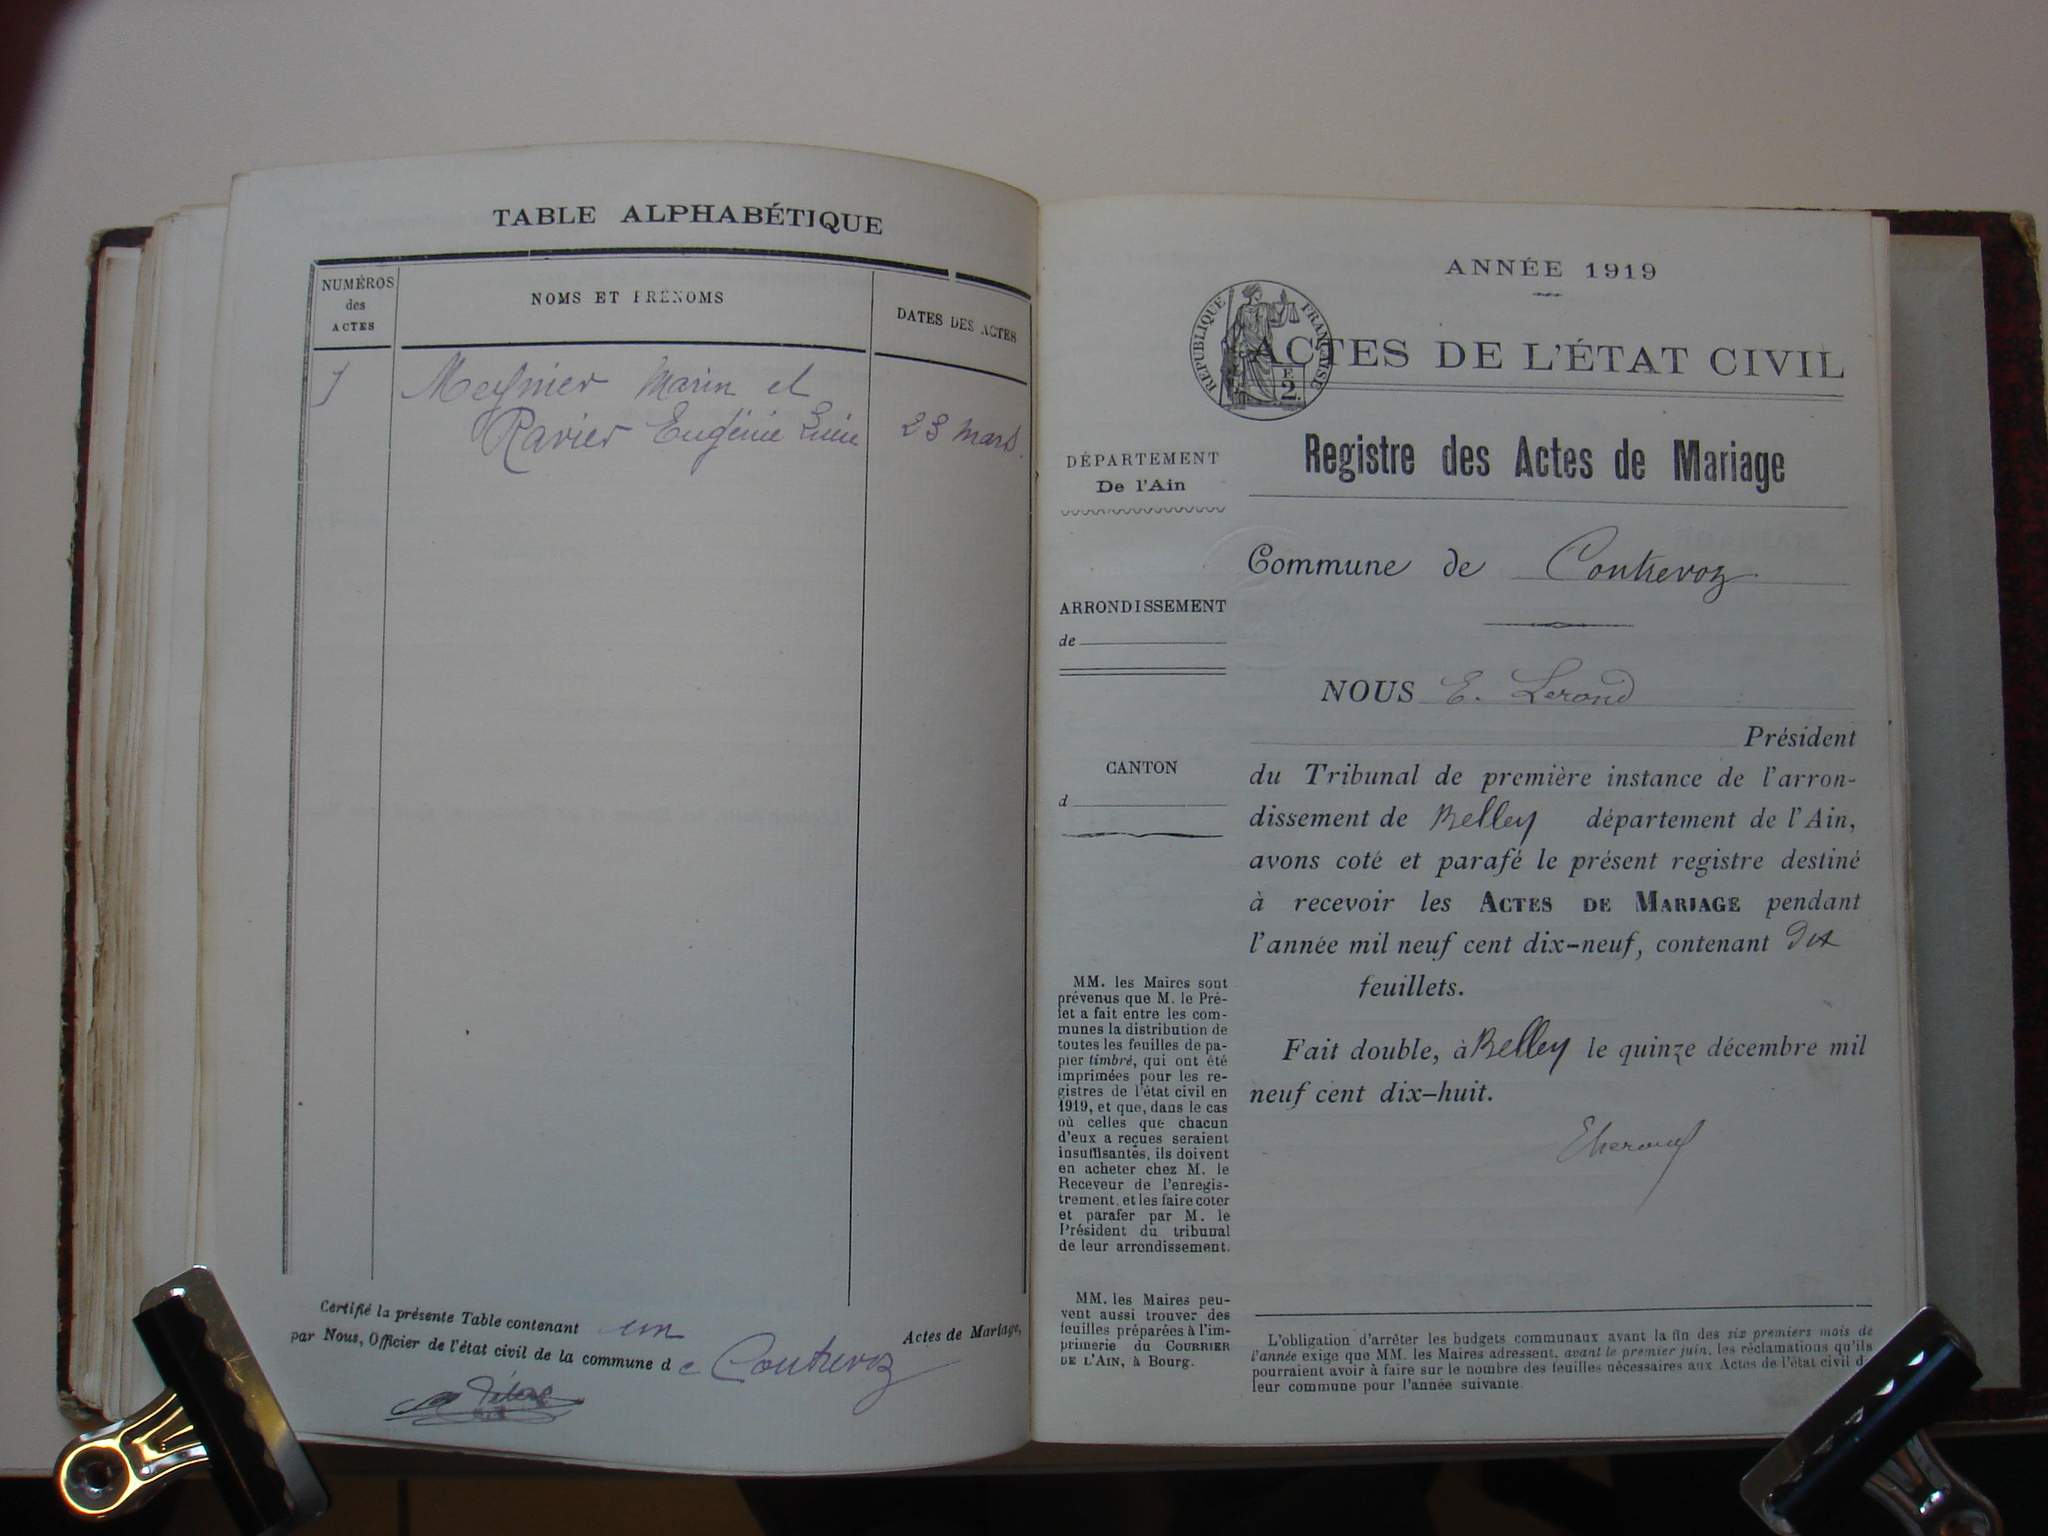 TABLE ALPHABÉTIQUE
NUMÉROS
des
ACTES
NOMS ET PRÉNOMS
DATES DES ACTES
1
Meynier Marin et
Ravier Eugénie Lucie
23 mars.
Certifié la présente Table contenant un Actes de Mariage,
par Nous, Officier de l'état civil de la commune de Contrevoz
ANNÉE 1919
RÉPUBLIQUE FRANÇAISE
2
ACTES DE L'ÉTAT CIVIL
Registre des Actes de Mariage
DÉPARTEMENT
De l'Ain
ARRONDISSEMENT
de
CANTON
d
Commune de Contrevoz
NOUS E. Lerond
Président
du Tribunal de première instance de l'arron-
dissement de Belley département de l'Ain,
avons coté et parafé le présent registre destiné
à recevoir les ACTES DE MARIAGE pendant
l'année mil neuf cent dix-neuf, contenant dix
feuillets.
Fait double, à Belley le quinze décembre mil
neuf cent dix-huit.
MM. les Maires sont
prévenus que M. le Pré-
fet a fait entre les com-
munes la distribution de
toutes les feuilles de pa-
pier timbré, qui ont été
imprimées pour les re-
gistres de l'état civil en
1919, et que, dans le cas
où celles que chacun
d'eux a reçues seraient
insuffisantes, ils doivent
en acheter chez M. le
Receveur de l'enregis-
trement, et les faire coter
et parafer par M. le
Président du tribunal
de leur arrondissement.
MM. les Maires peu-
vent aussi trouver des
feuilles préparées à l'im-
primerie du COURRIER
DE L'AIN, à Bourg.
L'obligation d'arrêter les budgets communaux avant la fin des six premiers mois de
l'année exige que MM. les Maires adressent, avant le premier juin, les réclamations qu'ils
pourraient avoir à faire sur le nombre des feuilles nécessaires aux Actes de l'état civil de
leur commune pour l'année suivante.